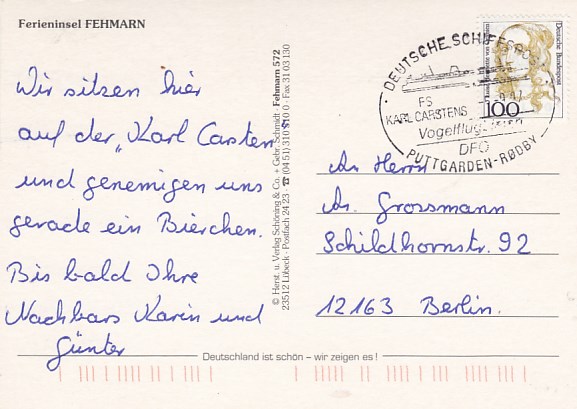 Ferieninsel FEHMARN
Wir sitzen hier
auf der „Karl Carstens"
und genemigen uns
gerade ein Bierchen.
Bis bald Ihre
Nachbars Karin und
Günter
© Herst. u. Verlag Schöning & Co. + Gebr. Schmidt · Fehmarn 572
23512 Lübeck - Postfach 24 23 - ☎ (04 51) 310 31 0 - Fax 31 03 130
DEUTSCHE SCHIFFSPOST
FS
KARL CARSTENS
Vogelfluglinien
DFO
PUTTGARDEN-RØDBY
Deutsche Bundespost
100
An Herrn
A. Grossmann
Schildhornstr. 92
12163 Berlin.
Deutschland ist schön – wir zeigen es!